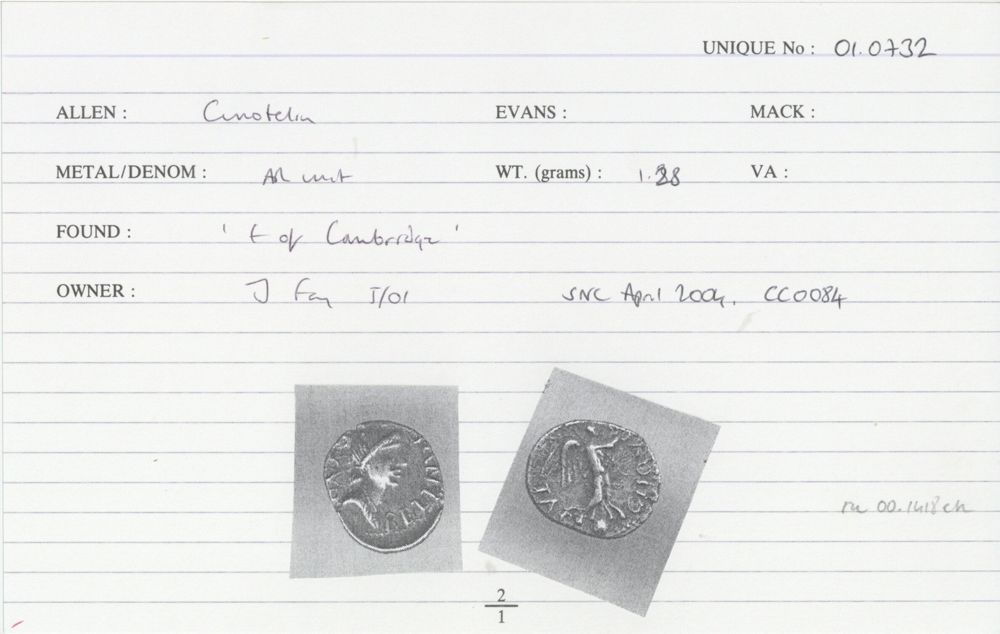 UNIQUE No : 01.0732
ALLEN : Cunobelin EVANS : MACK :
METAL/DENOM : AR unit WT. (grams) : 1. VA :
FOUND : ' E of Cambridge '
OWNER : J Fay I/01 SNC April 2004, CC0084
00.1418
2
1